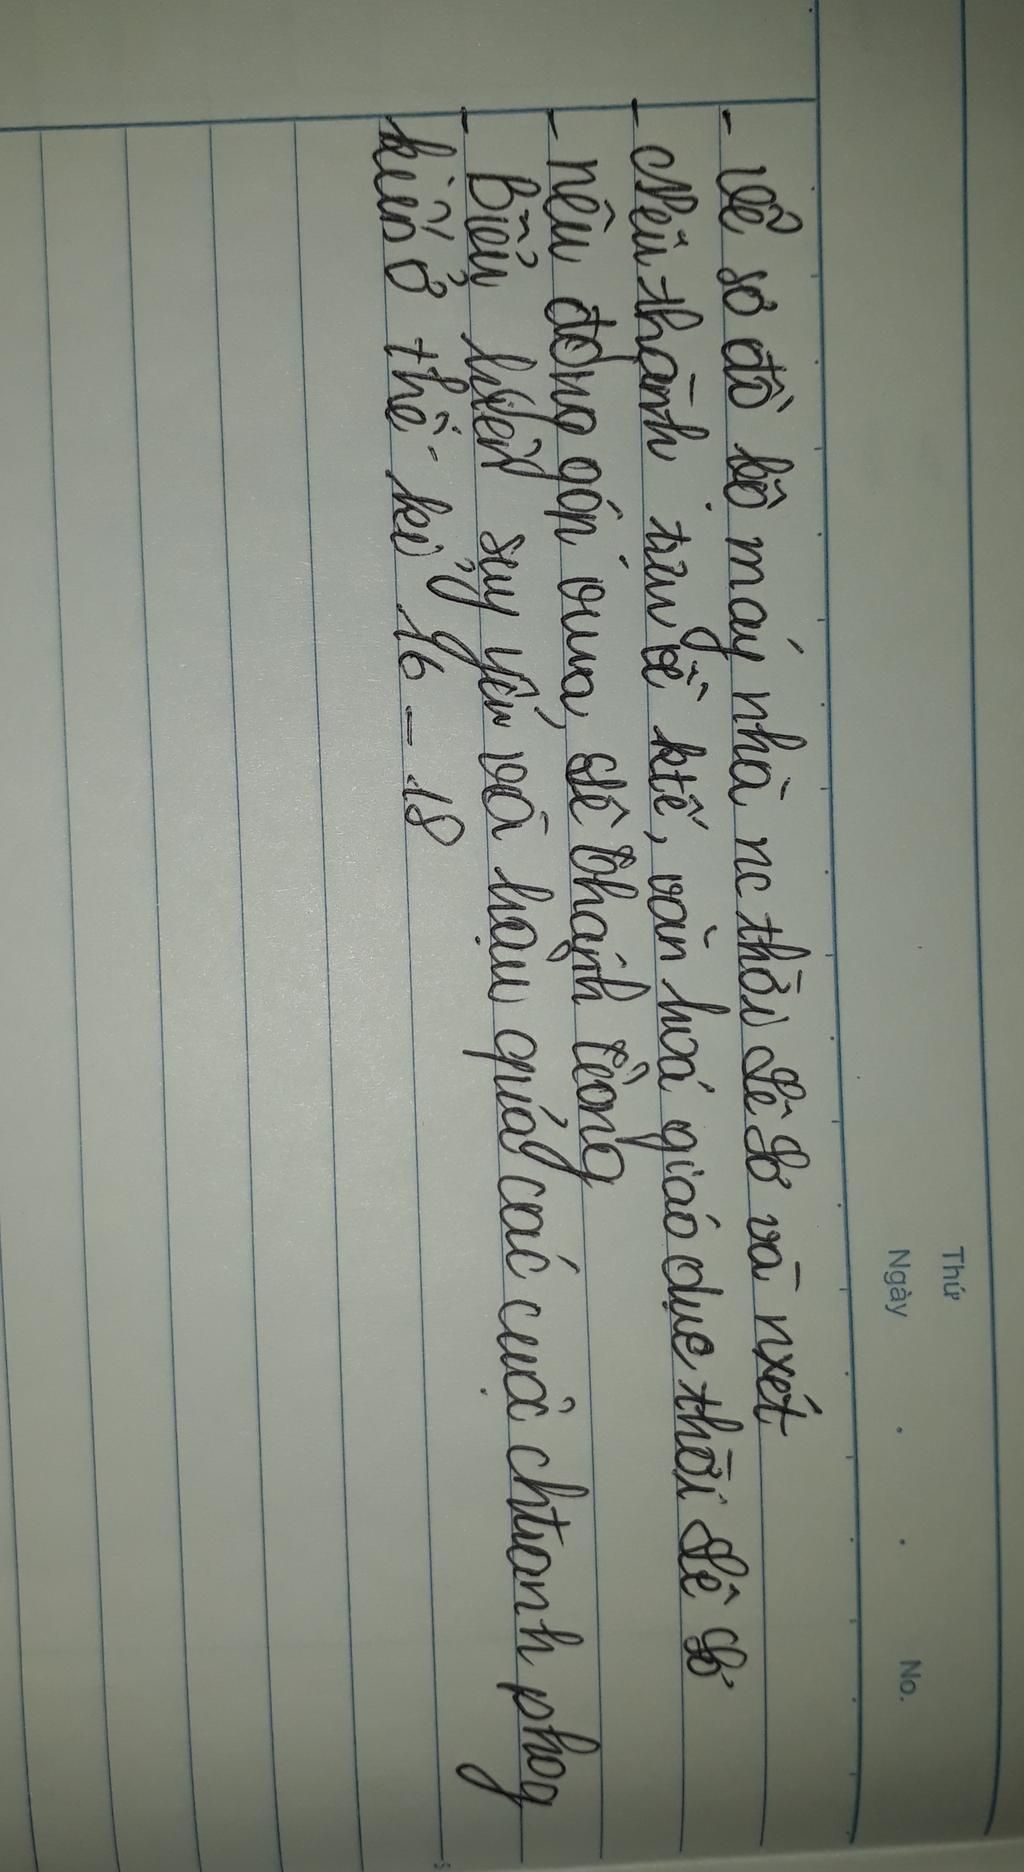 Thứ
Ngày . . No.
- Vẽ sơ đồ bộ máy nhà nc thời Lê Sơ và nxét
- Nêu thành tựu về ktế, văn hoá giáo dục thời Lê Sơ
- nêu đóng góp vua Lê Thánh Tông
- Biểu hiện suy yếu và hậu quả các cuộc chtranh phog
kiến ở thế kỉ 16 - 18